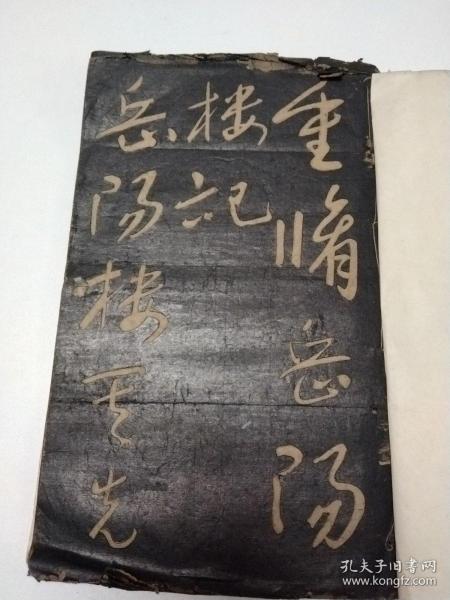 重脩岳陽
樓記
岳陽樓天先
孔夫子旧书网
www.kongfz.com